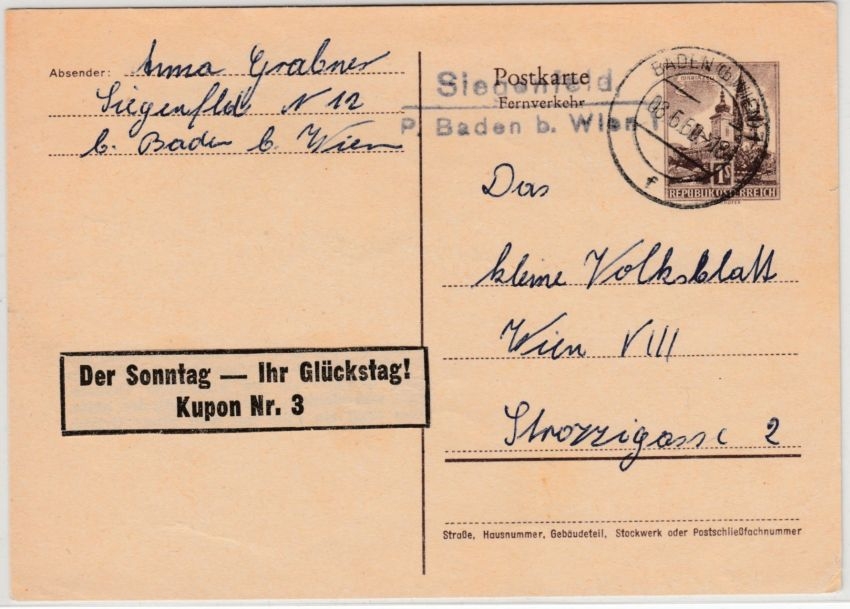 Absender: Anna Grabner
Siegenfeld N 12
b. Baden b. Wien
Postkarte
Fernverkehr
Siegenfeld
P. Baden b. Wien 1
BADEN (b. WIEN) 1
f
1S
REPUBLIK ÖSTERREICH
Das
kleine Volksblatt
Wien VIII
Strozzigasse 2
Der Sonntag — Ihr Glückstag!
Kupon Nr. 3
Straße, Hausnummer, Gebäudeteil, Stockwerk oder Postschließfachnummer